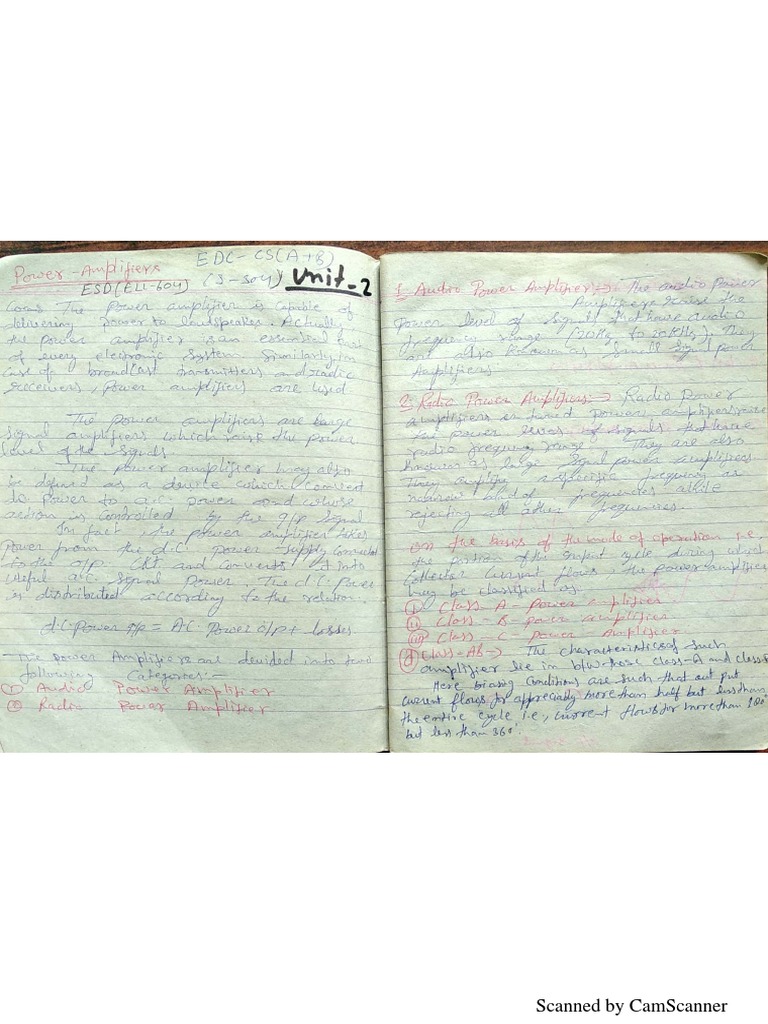 EDC- CS(A+B)
Power-Amplifiers
ESD(ELL-604) (J-304) Unit-2
The power amplifier is capable of
delivering power to loudspeaker. Actually
the power amplifier is an essential part
of every electronic system. Similarly in
case of broadcast transmitters and radio
receivers, power amplifiers are used
The power amplifiers are large
signal amplifiers which raise the power
level of the signals.
The power amplifier may also
be defined as a device which convert
d.c. power to a.c. power and whose
action is controlled by the i/p signal
In fact, the power amplifier takes
power from the d.c. power supply connected
to the o/p Ckt and converts it into
useful a.c. signal power. The d.c. power
is distributed according to the relation.
d.c. Power i/p = AC. Power o/p + losses
The power Amplifiers are devided into two
following Categories:-
(i) Audio Power Amplifier
(ii) Radio Power Amplifier
1. Audio Power Amplifier:→ The audio power
Amplifiers raise the
power level of signals that have audio
frequency range (20Hz to 20KHz). They
are also known as Small signal power
Amplifiers
2. Radio Power Amplifiers:→ Radio Power
amplifiers or tuned power amplifiers raise
the power level of signals that have
radio frequency range. They are also
known as large signal power amplifiers
They amplify a specific frequency or
narrow band of frequencies while
rejecting all other frequencies.
on the basis of the mode of operation i.e.
the portion of the input cycle during which
collector current flows. the power amplifier
may be classified as.
(i) Class-A-power amplifier.
(ii) Class-B power amplifier
(iii) Class-C-Power Amplifier
Class-AB→ The characteristics of such
amplifier lie in b/w those class-A and class B
Here biasing conditions are such that out put
current flows for appreciably more than half but less than
the entire cycle i.e., current flows for more than 180°
but less than 360°.
Scanned by CamScanner